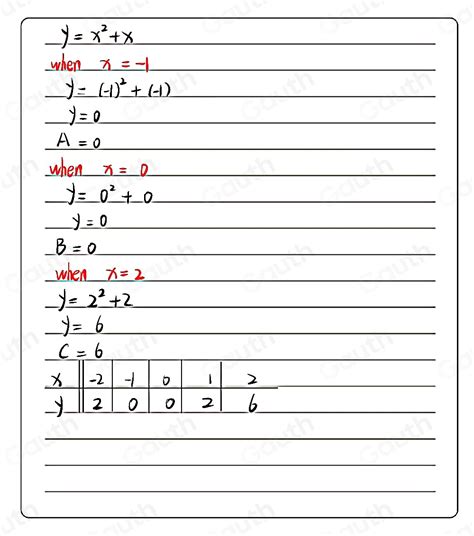 y = x² + x
when x = -1
y = (-1)² + (-1)
y = 0
A = 0
when x = 0
y = 0² + 0
y = 0
B = 0
when x = 2
y = 2² + 2
y = 6
C = 6
x -2 -1 0 1 2
y 2 0 0 2 6
Gauth